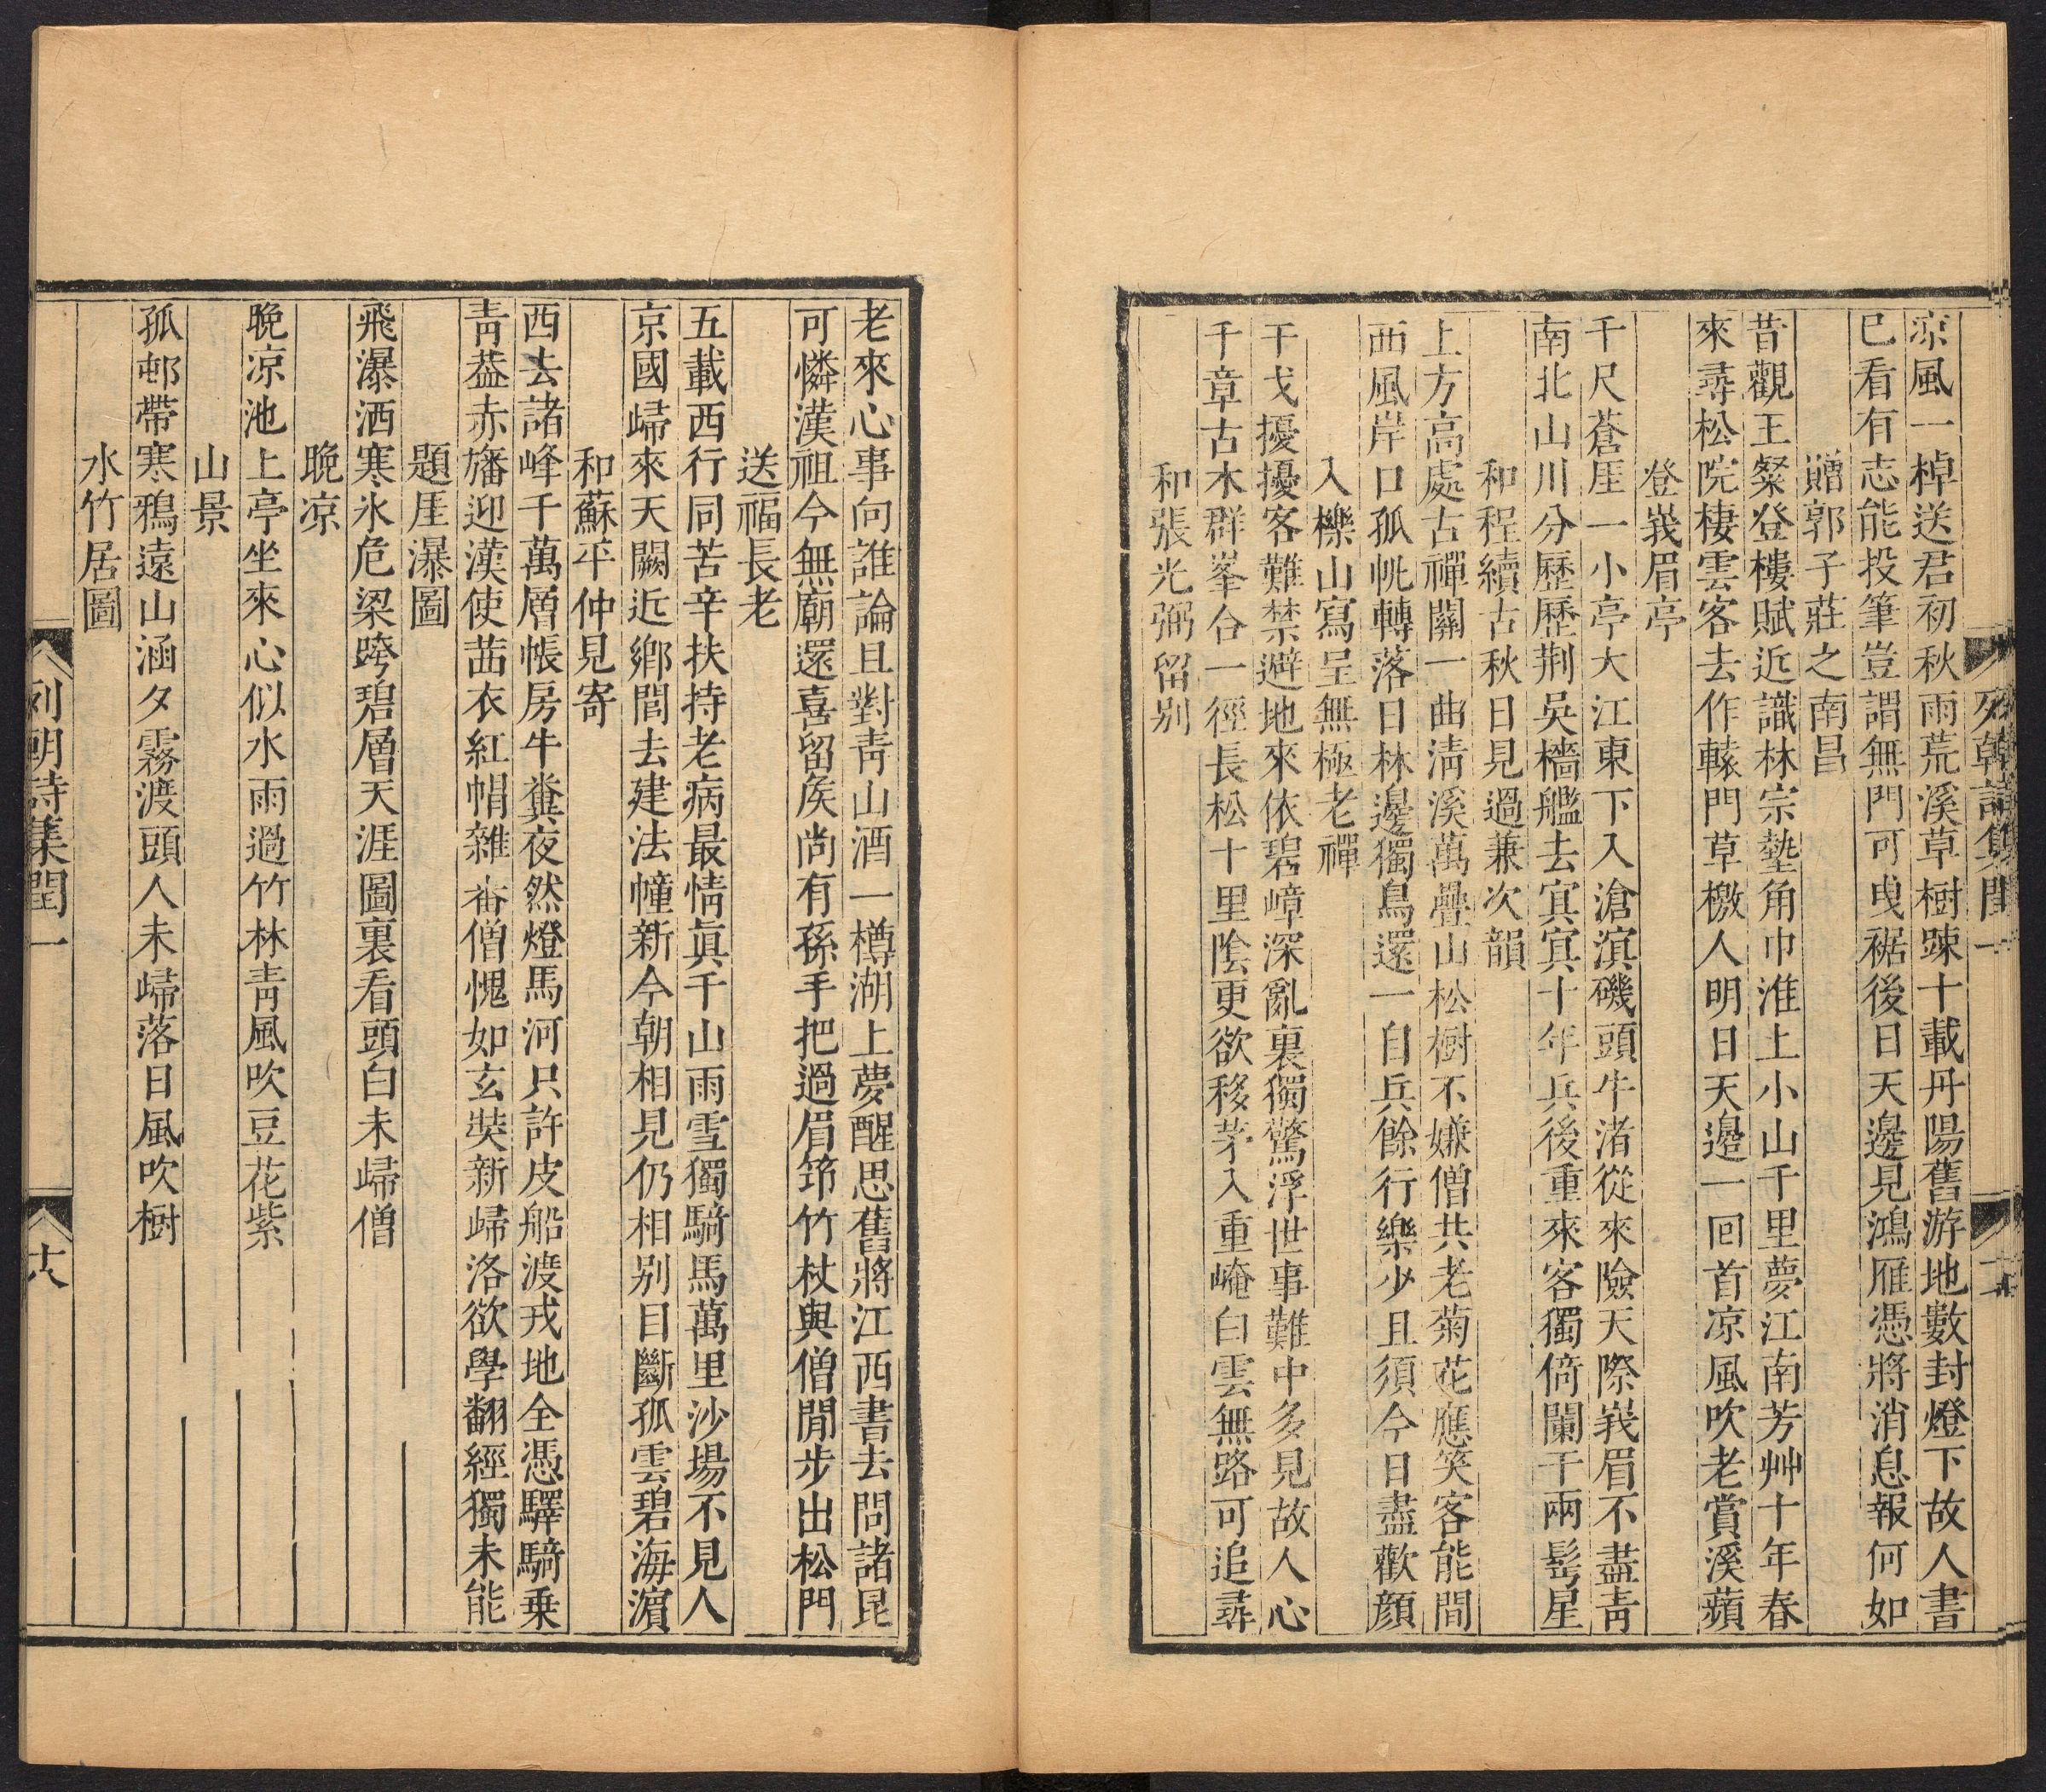 涼風一棹送君初秋雨荒溪草樹踈十載丹陽舊游地數封燈下故人書
已看有志能投筆豈謂無門可曳裾後日天邊見鴻雁憑將消息報何如
贈郭子莊之南昌
昔觀王粲登樓賦近識林宗墊角巾淮土小山千里夢江南芳艸十年春
來尋松院棲雲客去作轅門草檄人明日天邊一回首凉風吹老賞溪蘋
登峩眉亭
千尺蒼厓一小亭大江東下入滄溟磯頭牛渚從來險天際峩眉不盡青
南北山川分歷歷荆吳檣艦去冥冥十年兵後重來客獨倚闌干兩髩星
和程續古秋日見過兼次韻
上方高處古禪關一曲清溪萬疊山松樹不嫌僧共老菊花應笑客能閒
西風岸口孤帆轉落日林邊獨鳥還一自兵餘行樂少且須今日盡歡顔
入櫟山寫呈無極老禪
干戈擾擾客難禁避地來依碧嶂深亂裏獨驚浮世事難中多見故人心
千章古木群峯合一徑長松十里陰更欲移茅入重崦白雲無路可追尋
和張光弼留别
老來心事向誰論且對青山酒一樽湖上夢醒思舊將江西書去問諸昆
可憐漢祖今無廟還喜留矦尚有孫手把過眉笻竹杖與僧閒步出松門
送福長老
五載西行同苦辛扶持老病最情眞千山雨雪獨騎馬萬里沙場不見人
京國歸來天闕近鄉閭去建法幢新今朝相見仍相别目斷孤雲碧海濵
和蘇平仲見寄
西去諸峰千萬層帳房牛糞夜然燈馬河只許皮船渡戎地全憑驛騎乗
青葢赤旛迎漢使茜衣紅帽雜畨僧愧如玄奘新歸洛欲學翻經獨未能
題厓瀑圖
飛瀑洒寒氷危梁跨碧層天涯圖裏看頭白未歸僧
晚凉
晚凉池上亭坐來心似水雨過竹林青風吹豆花紫
山景
孤邨帶寒鴉遠山涵夕霧渡頭人未歸落日風吹樹
水竹居圖
列朝詩集閏一
十八